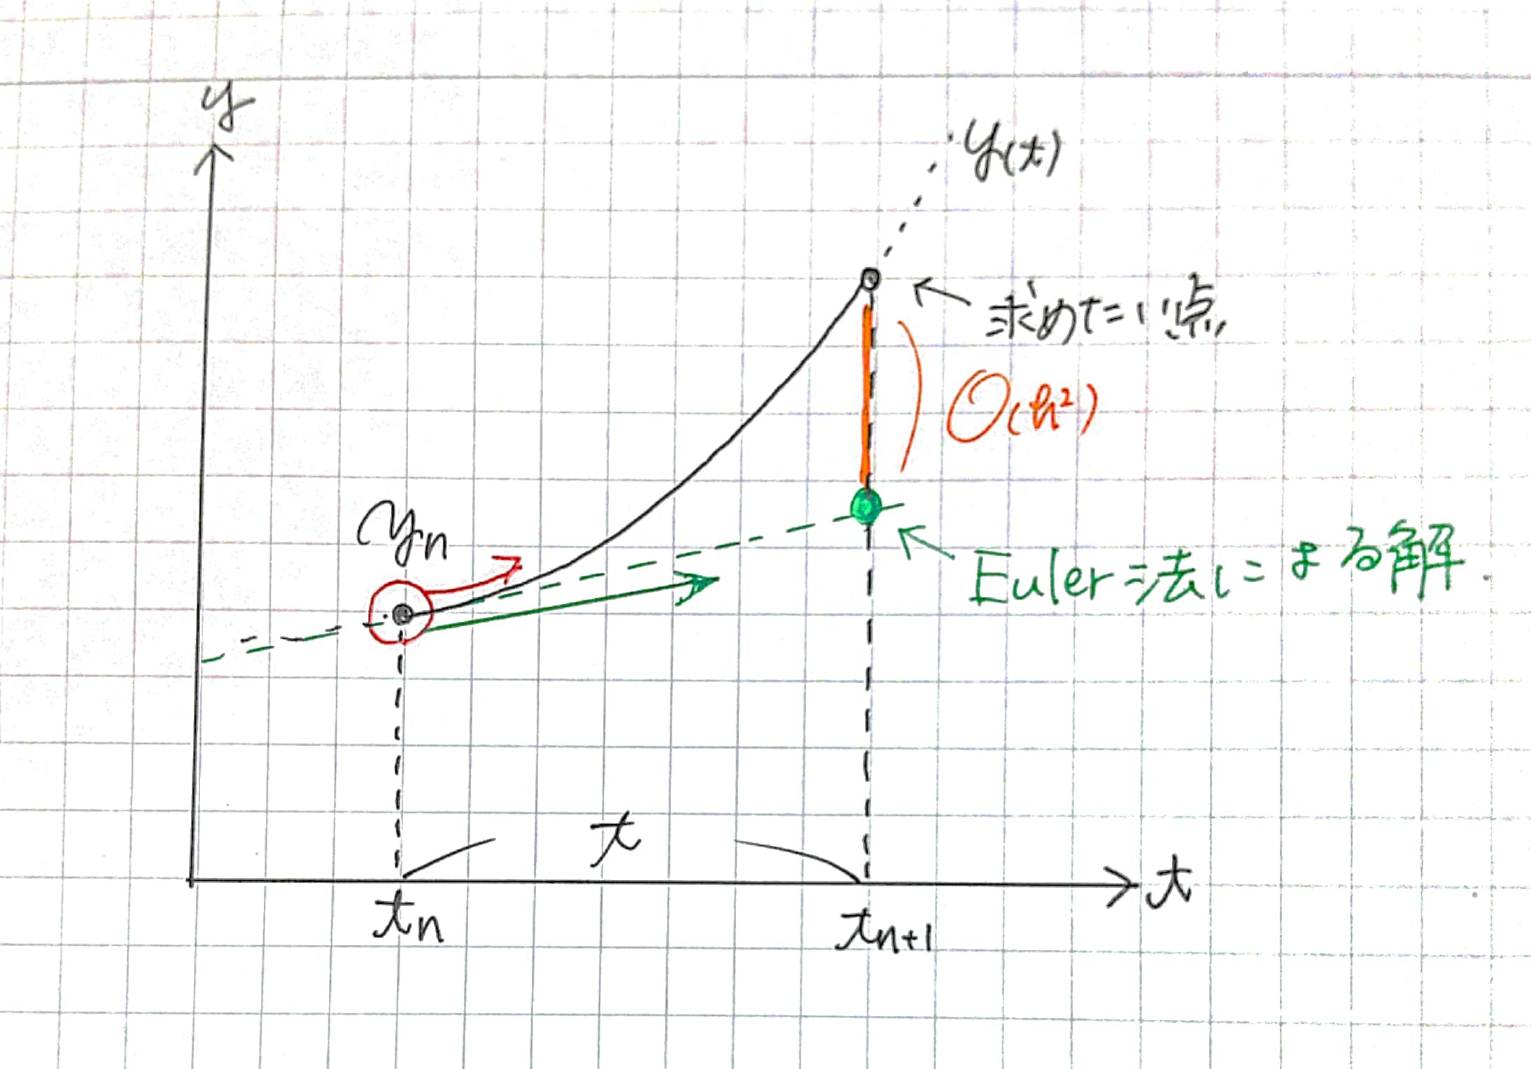 y
y(t)
求めたい点
O(h²)
yn
Euler法による解.
t
t
tn
tn+1